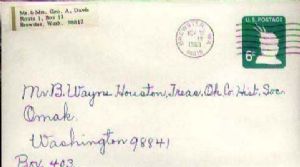 Mr. & Mrs. Geo. A. Davis
Route 1, Box 11
Brewster, Wash. 98812
BREWSTER, WA
1969
98812
U.S. POSTAGE
6¢
Mr. B. Wayne Houston, Treas. Ok. Co. Hist. Soc.
Omak.
Washington 98841
Box 403